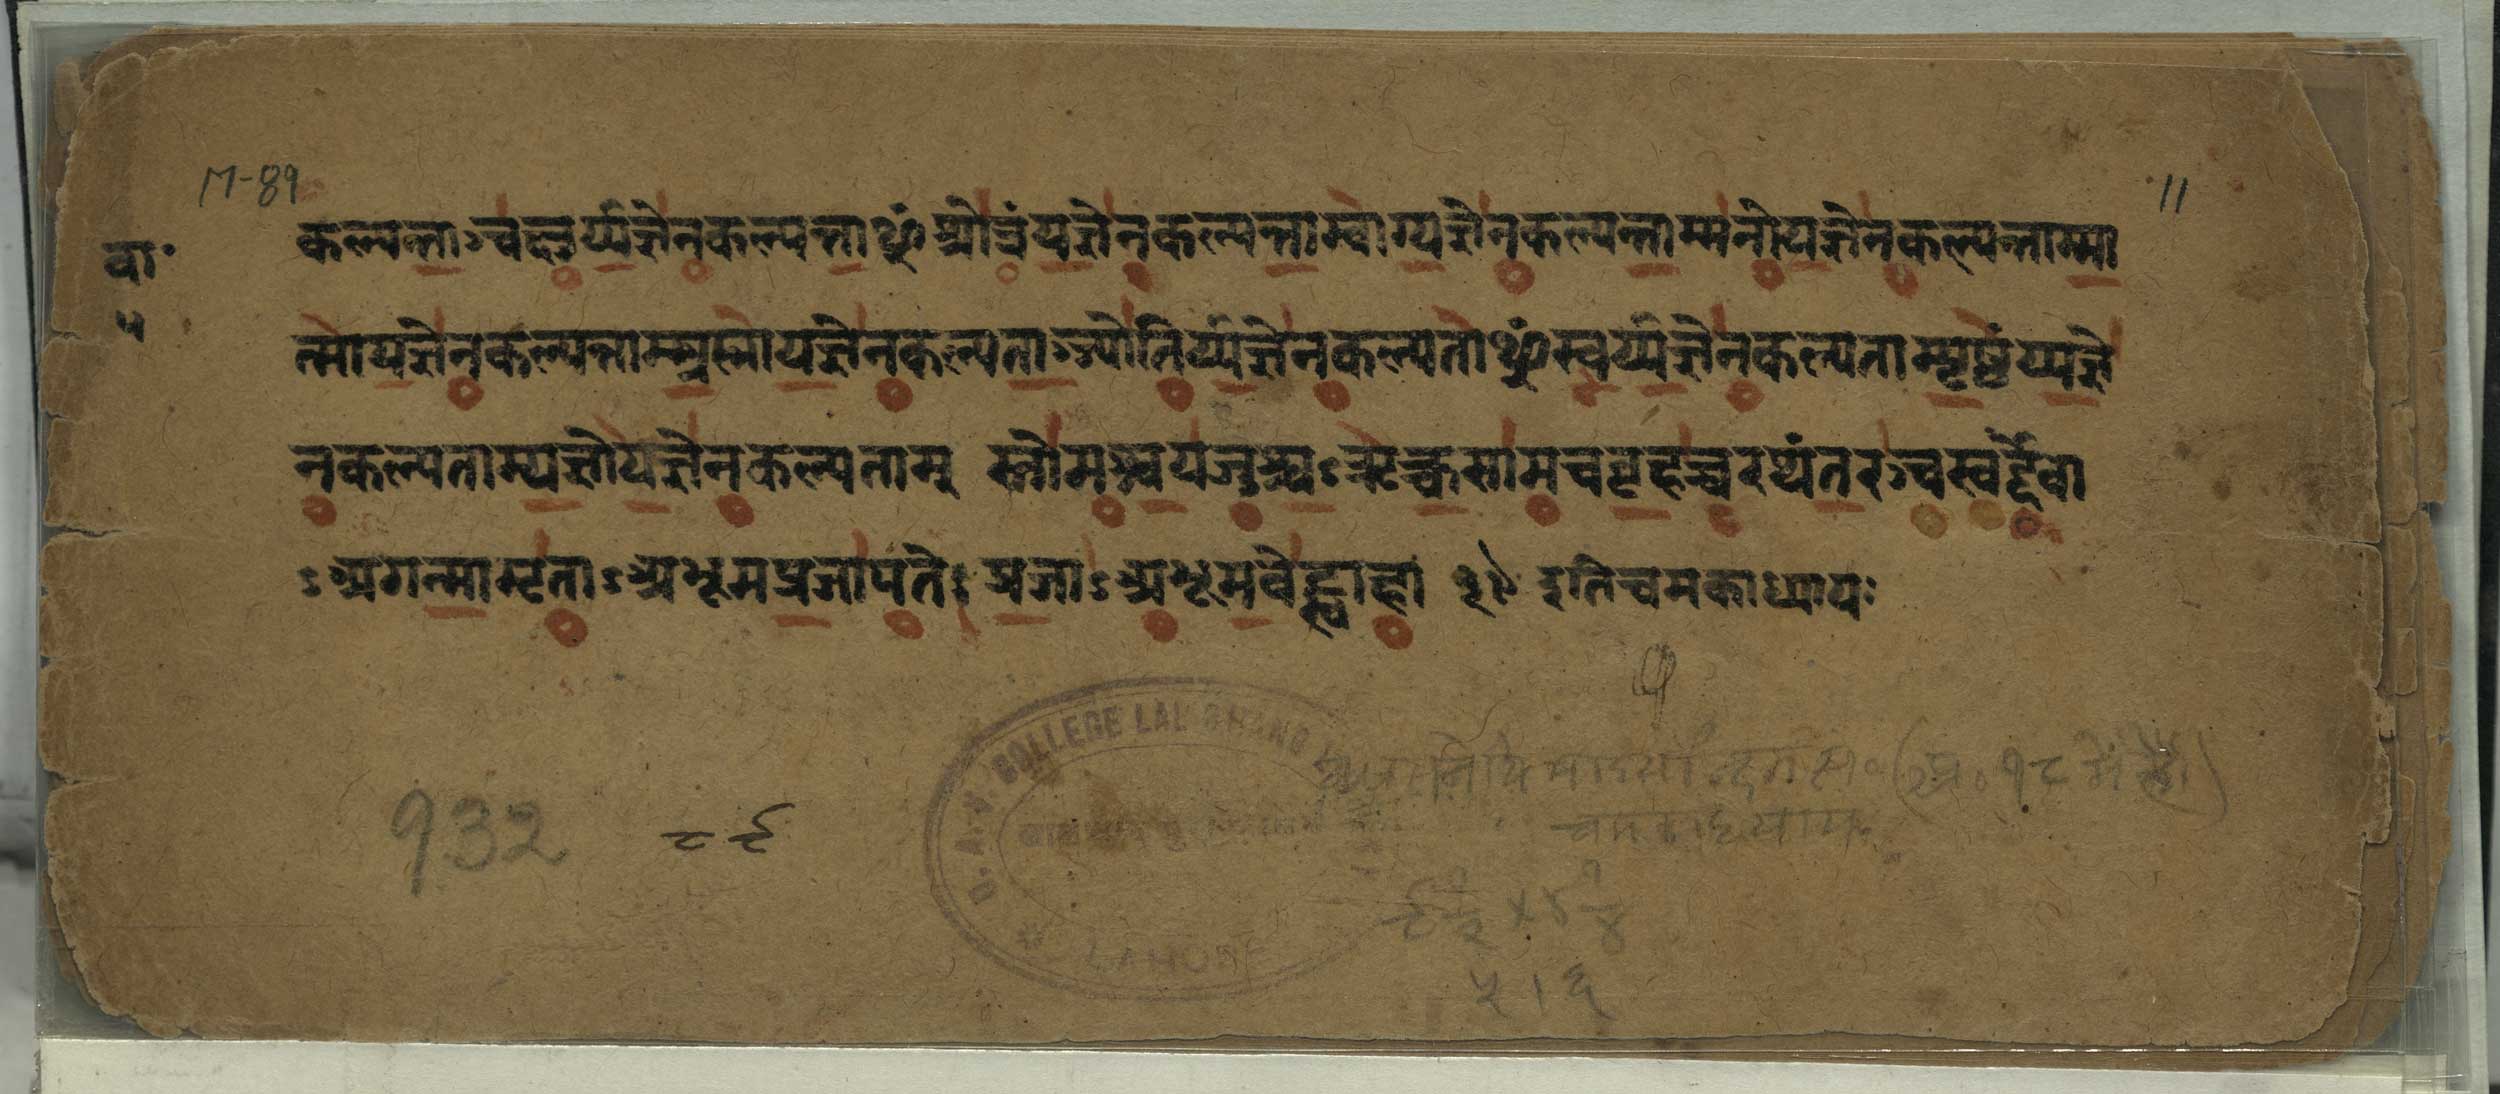 M-89
11
वा॰
५
कल्पन्ताञ्चक्षुर्य्यज्ञेनकल्पन्ताᳪश्रोत्रंयज्ञेनकल्पन्ताम्वाग्यज्ञेनकल्पन्ताम्मनोयज्ञेनकल्पन्ताम्मा
त्मायज्ञेनकल्पन्ताम्ब्रह्मायज्ञेनकल्पताञ्ज्योतिर्य्यज्ञेनकल्पताᳪस्वर्य्यज्ञेनकल्पताम्पृष्ठंय्यज्ञे
नकल्पताम्यज्ञोयज्ञेनकल्पताम् स्तोमश्चयजुश्चऽऋक्चसामचबृहच्चरथंतरञ्चस्वर्द्देवा
ऽअगन्मामृताऽअभूमप्रजापतेः प्रजाऽअभूमवेट्स्वाहा इतिचमकाध्यायः
D.A.V. COLLEGE LAL CHAND
LAHORE
१३२
८९
(अ॰ १८ में है।)
चमकाध्याय
५।६